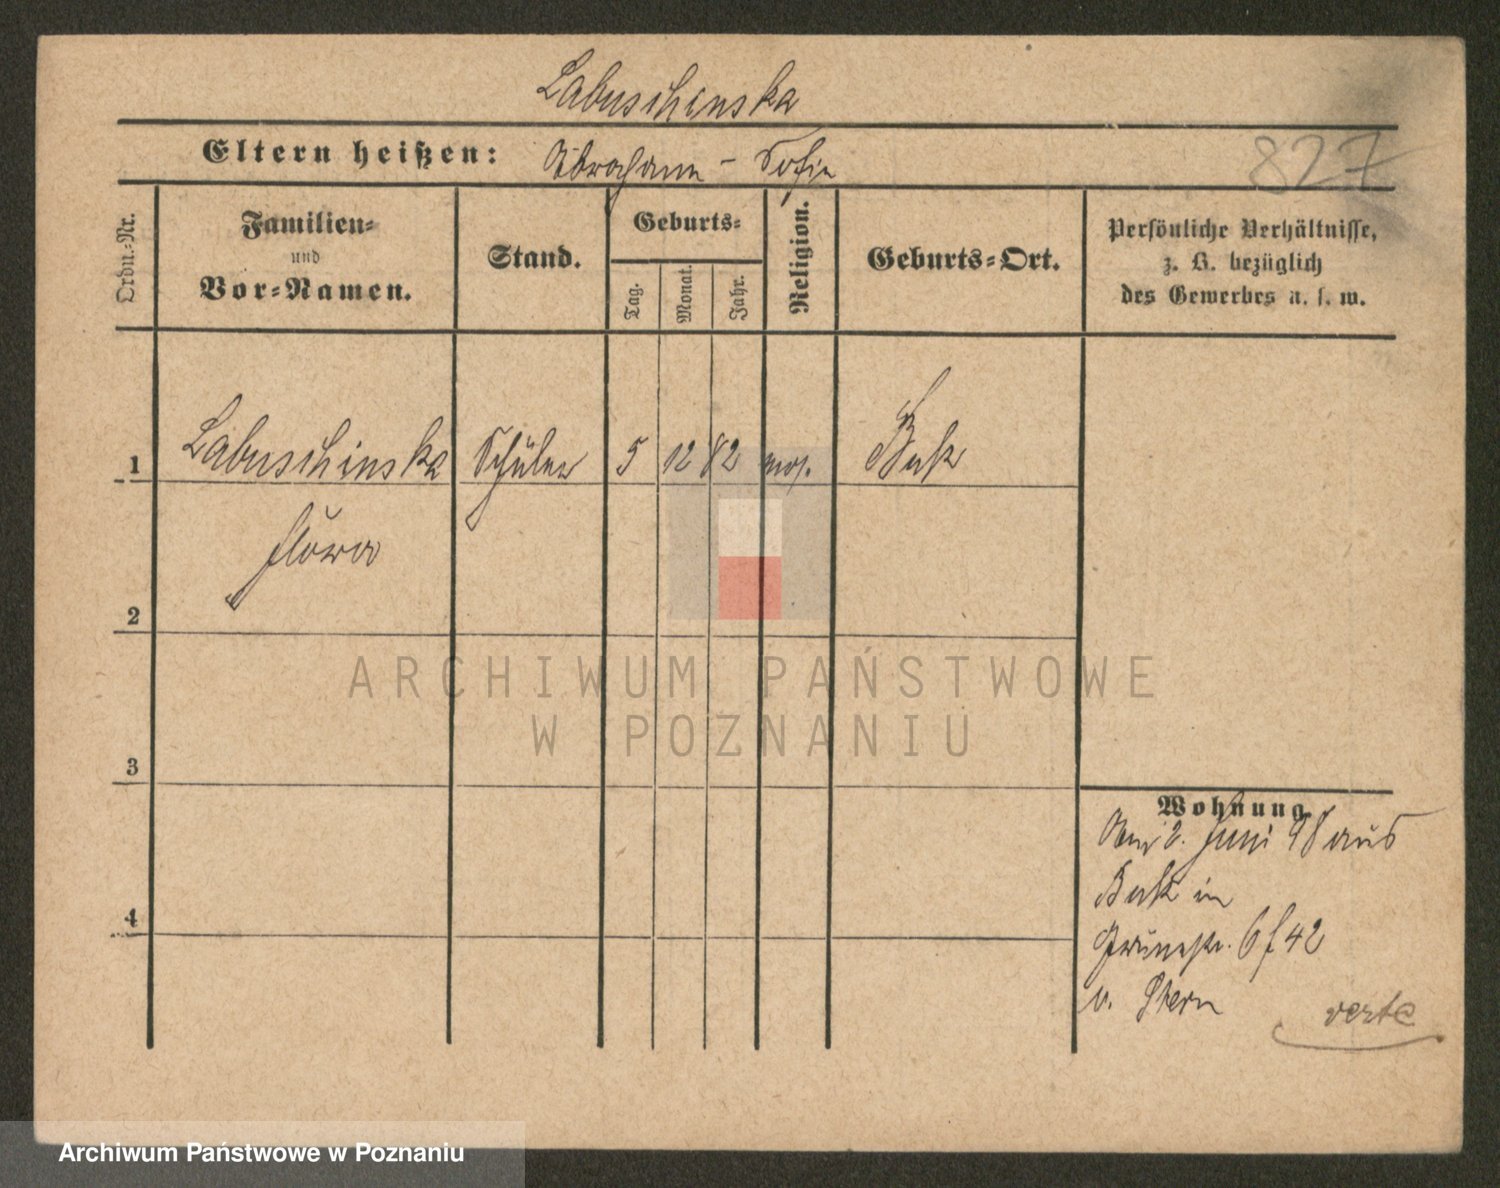 Labuschinska
827
Eltern heißen: Abraham - Sofie
Ordn.-Nr.
Familien-
und
Vor-Namen.
Stand.
Geburts-
Tag.
Monat.
Jahr.
Religion.
Geburts-Ort.
Persönliche Verhältnisse,
z. B. bezüglich
des Gewerbes u. s. w.
1 Labuschinska Schüler 5 12 82 mos. Buk
Flora
2
3
4
Wohnung
Am 2. Juni 98 aus
Buk in
Grünestr. 6 f 42
v. Stern
verte
ARCHIWUM PAŃSTWOWE
W POZNANIU
Archiwum Państwowe w Poznaniu